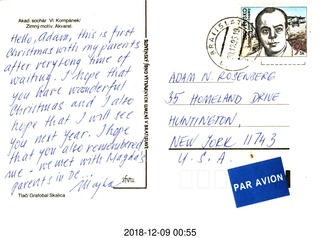 Akad. sochár Vl. Kompánek:
Zimný motív. Akvarel.
Hello, Adam, this is first
Christmas with my parents
after very long time of
waiting. I hope that
you have wonderful
Christmas and I also
hope that I will see
you next year. I hope
that you also remembered
me - we met with Magda's
parents in
Tlač: Grafobal Skalica
BRATISLAVA
SLOVENSKO
ADAM N. ROSENBERG
35 HOMELAND DRIVE
HUNTINGTON,
NEW YORK 11743
U. S. A.
PAR AVION
2018-12-09 00:55